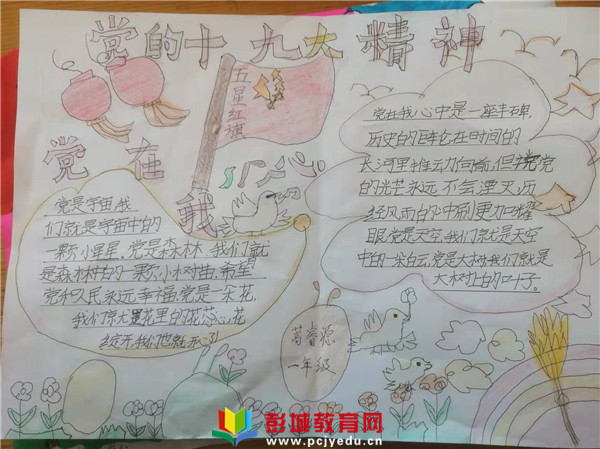 党的十九大精神
五星红旗
党在我
党是宇宙,我
们就是宇宙中的
一颗小星星,党是森林,我们就
是森林中的一颗小树苗,希望
党和人民永远幸福,党是一朵花,
我们就是花里的花蕊心,花
绽开我们也就开心
党在我心中是一座丰碑,
历史的巨轮在时间的
长河里推动向前,但党
的光芒永远不会湮灭,历
经风雨的冲刷更加耀
眼,党是天空,我们就是天空
中的一朵白云,党是大树,我们就是
大树上的叶子。
葛睿源
一年级
彭城教育网
www.pcjyedu.cn